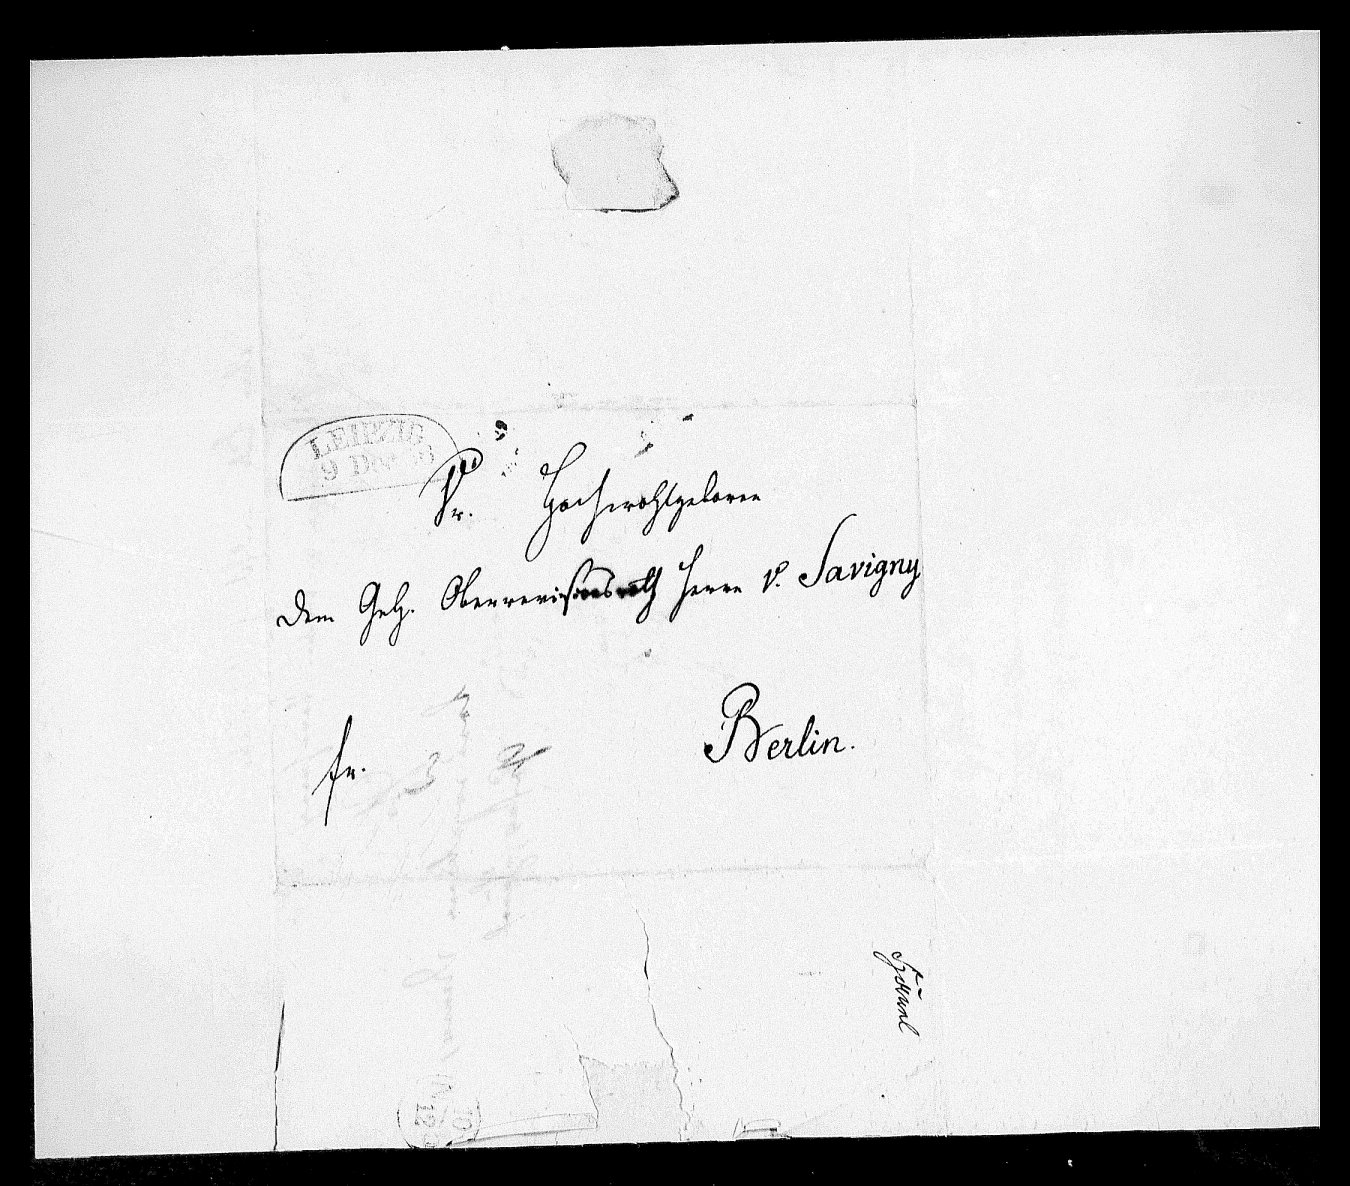 LEIPZIG
9 Dec
Sr. Hochwohlgeboren
dem Geh. Oberrevisionsrath Herrn v. Savigny
Berlin.
fr.